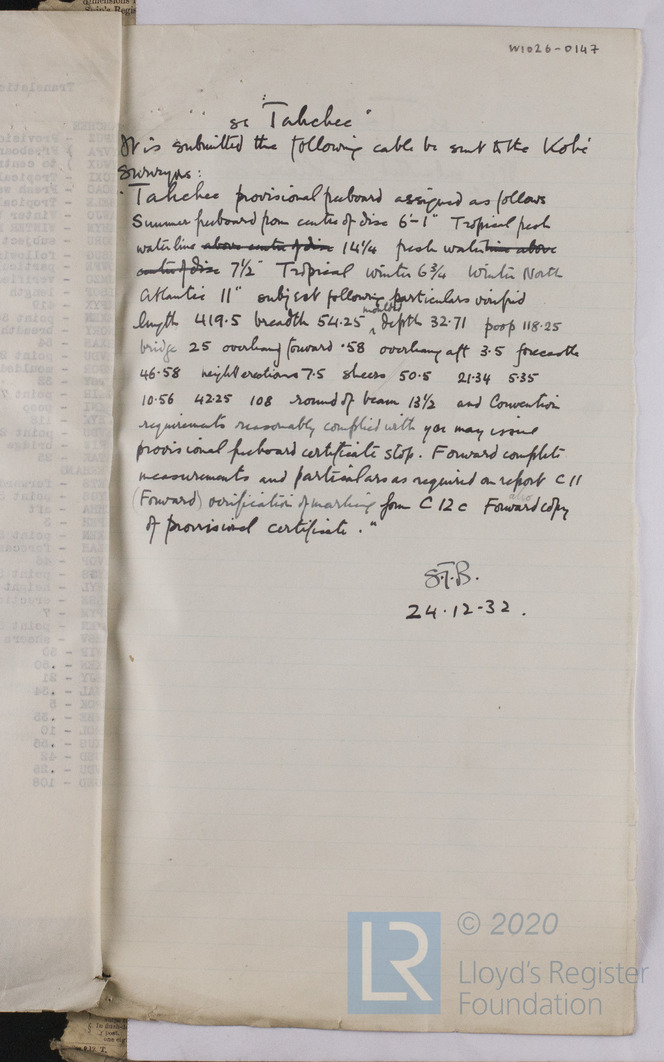 W1026-0147
ss "Tahchee"
It is submitted the following cable be sent to the Kobé
Surveyors:
"Tahchee provisional freeboard assigned as follows
Summer freeboard from centre of disc 6'-1" Tropical fresh
water line above centre of disc 14 1/4 fresh water line above
centre of disc 7 1/2 Tropical winter 6 3/4 Winter North
Atlantic 11" subject following particulars verified
length 419.5 breadth 54.25 moulded depth 32.71 poop 118.25
bridge 25 overhang forward .58 overhang aft 3.5 forecastle
46.58 height erections 7.5 sheers 50.5 21.34 5.35
10.56 42.25 108 round of beam 13 1/2 and Convention
requirements reasonably complied with you may issue
provisional freeboard certificate stop. Forward complete
measurements and particulars as required on report C11
(Forward) verification of marking form C12c Forward also copy
of provisional certificate."
S.T.B.
24.12.32.
LR
© 2020
Lloyd's Register
Foundation